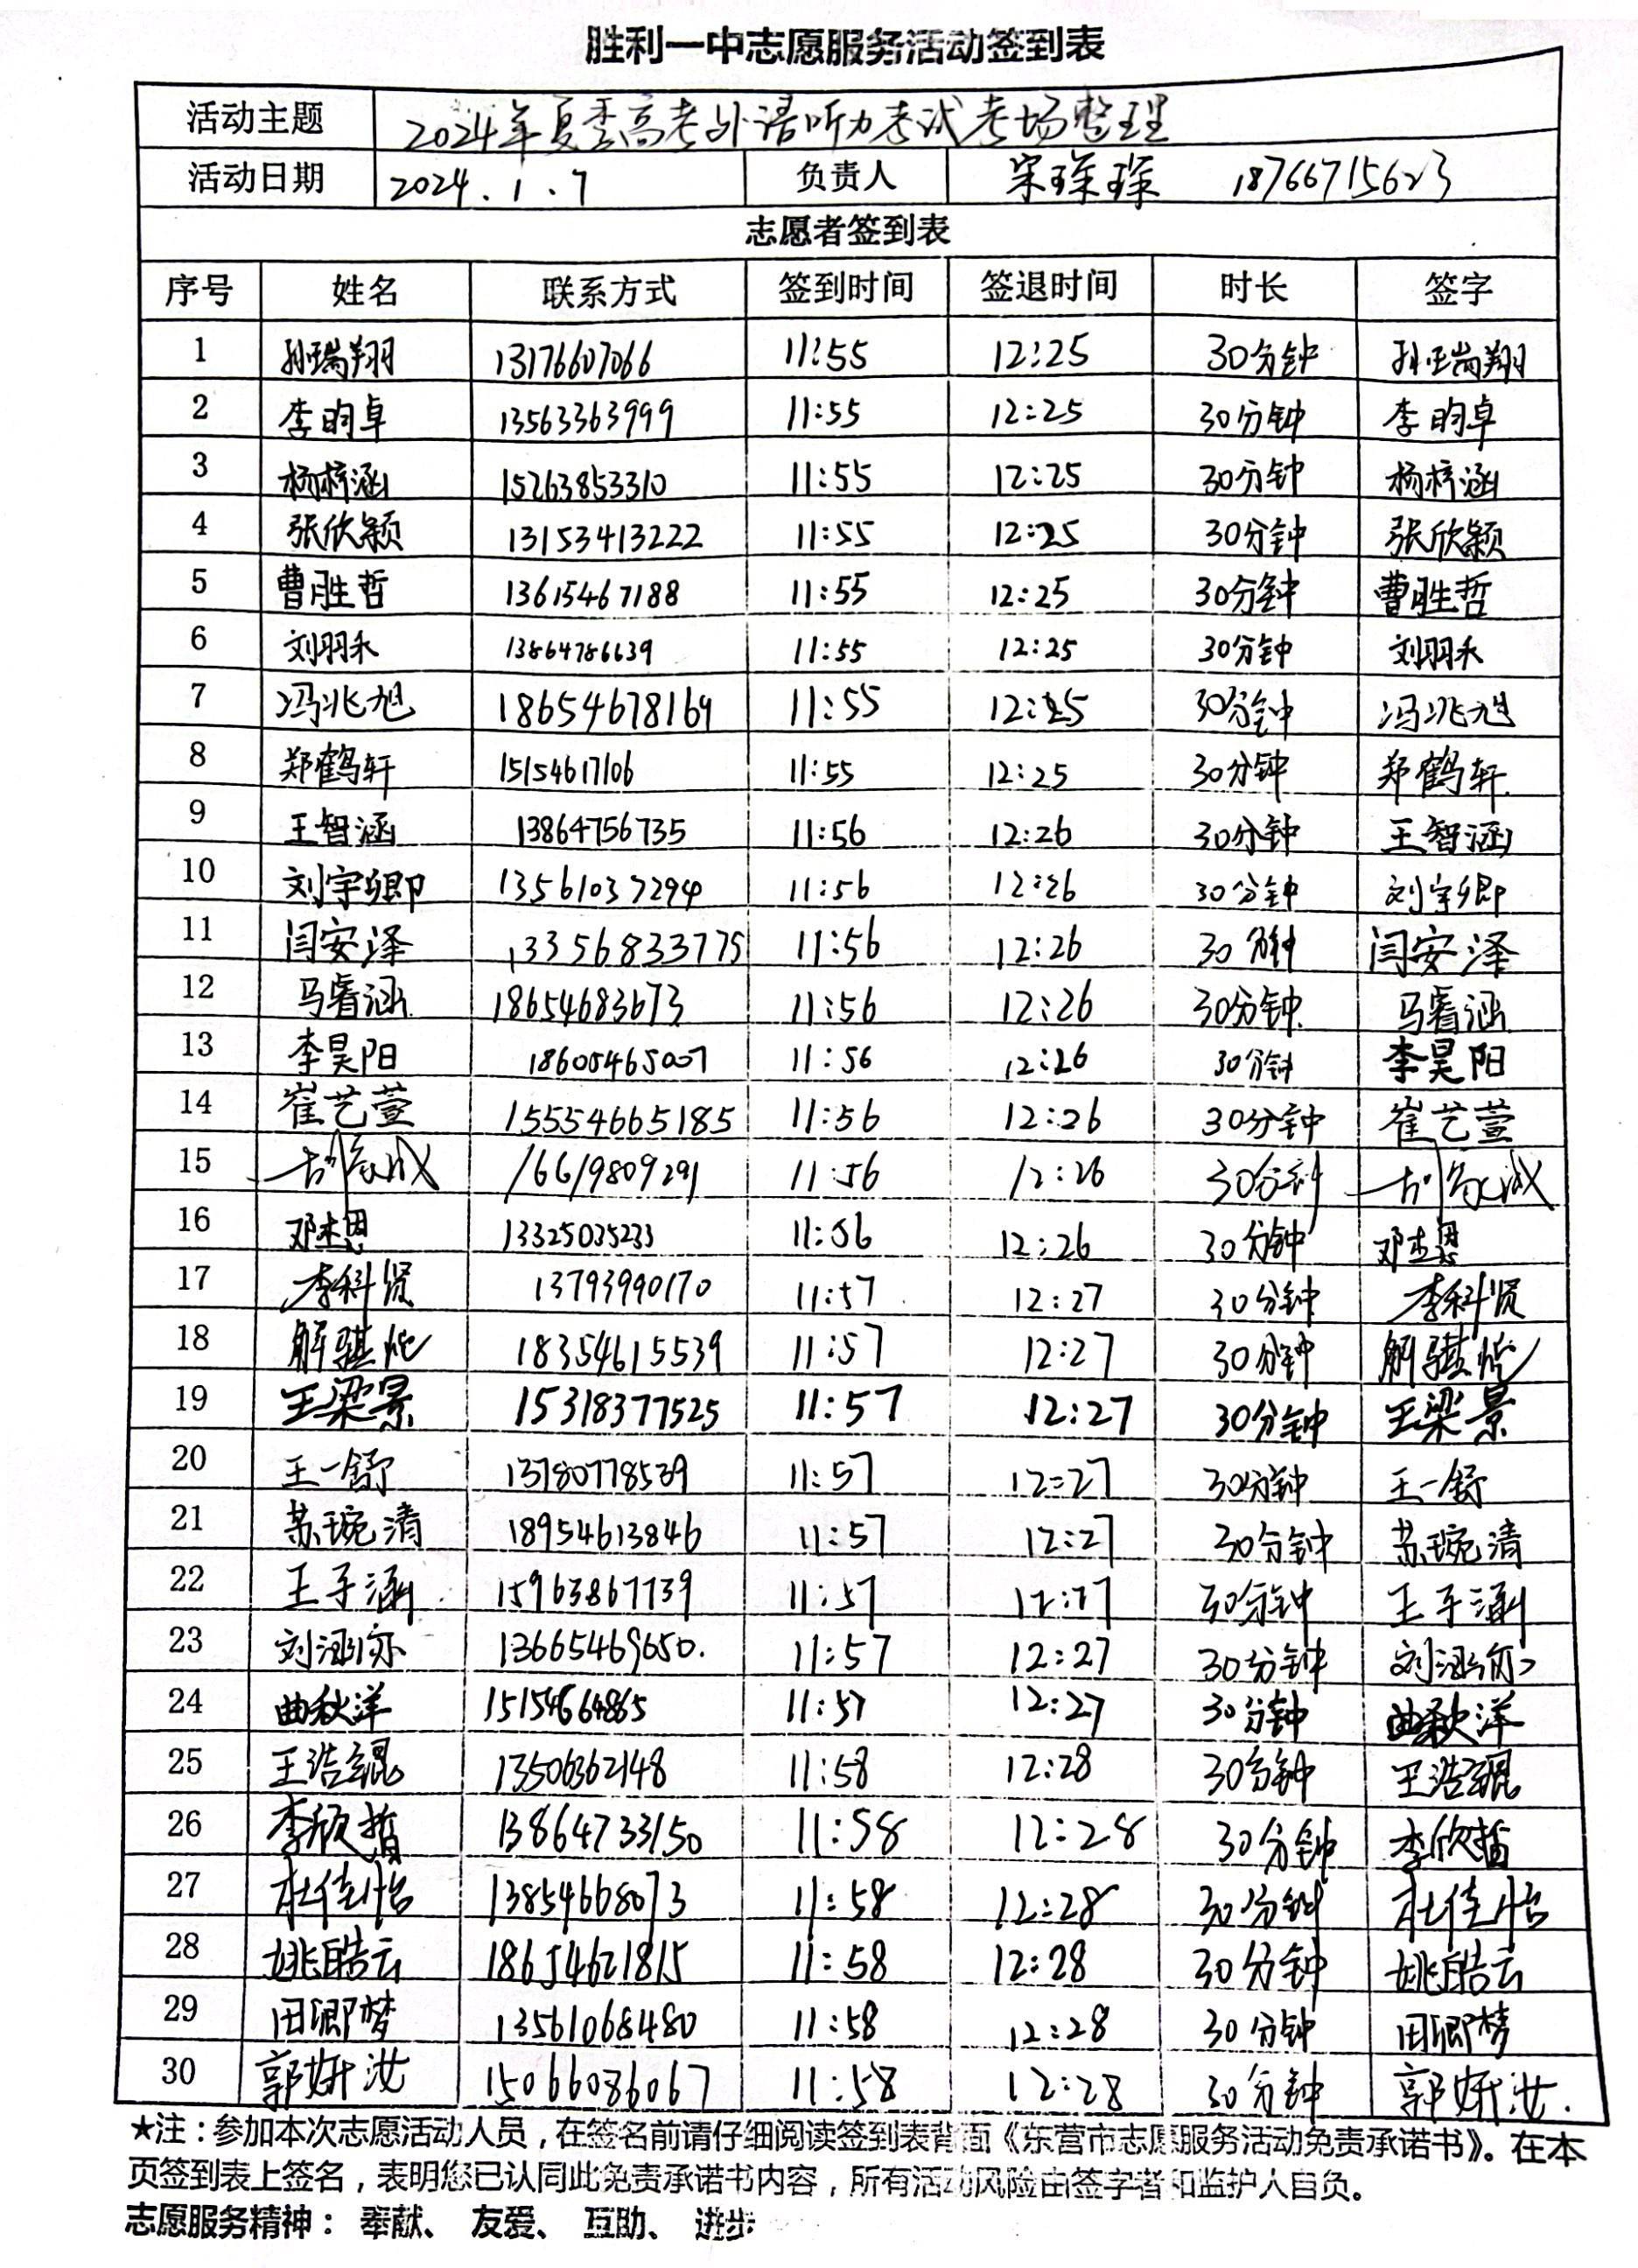 胜利一中志愿服务活动签到表
活动主题 2024年夏季高考外语听力考试考场整理
活动日期 2024.1.7 负责人 宋琛琛 18766715623
志愿者签到表
序号 姓名 联系方式 签到时间 签退时间 时长 签字
1 孙瑞翔 13176607066 11:55 12:25 30分钟 孙瑞翔
2 李昀卓 13563363999 11:55 12:25 30分钟 李昀卓
3 杨梓涵 15263853310 11:55 12:25 30分钟 杨梓涵
4 张欣颖 13153413222 11:55 12:25 30分钟 张欣颖
5 曹胜哲 13615467188 11:55 12:25 30分钟 曹胜哲
6 刘羽禾 13864786639 11:55 12:25 30分钟 刘羽禾
7 冯兆旭 18654678169 11:55 12:25 30分钟 冯兆旭
8 郑鹤轩 15154617106 11:55 12:25 30分钟 郑鹤轩
9 王智涵 13864756735 11:56 12:26 30分钟 王智涵
10 刘宇卿 13561037294 11:56 12:26 30分钟 刘宇卿
11 闫安泽 13356833775 11:56 12:26 30分钟 闫安泽
12 马睿涵 18654683673 11:56 12:26 30分钟 马睿涵
13 李昊阳 18605465007 11:56 12:26 30分钟 李昊阳
14 崔艺萱 15554665185 11:56 12:26 30分钟 崔艺萱
15 16619809291 11:56 12:26 30分
16 邓杰恩 13325035233 11:56 12:26 30分钟 邓杰恩
17 李科贤 13793990170 11:57 12:27 30分钟 李科贤
18 解骐 18354615539 11:57 12:27 30分钟 解骐
19 王梁景 15318377525 11:57 12:27 30分钟 王梁景
20 王一舒 13780778539 11:57 12:27 30分钟 王一舒
21 苏琬清 18954613846 11:57 12:27 30分钟 苏琬清
22 王子涵 15963867739 11:57 12:27 30分钟 王子涵
23 刘涵弥 13665469650. 11:57 12:27 30分钟 刘涵弥
24 曲秋洋 15154664865 11:57 12:27 30分钟 曲秋洋
25 王浩锟 13506362148 11:58 12:28 30分钟 王浩锟
26 李欣哲 13864733150 11:58 12:28 30分钟 李欣哲
27 杜佳怡 13854668073 11:58 12:28 30分钟 杜佳怡
28 姚皓云 18654621815 11:58 12:28 30分钟 姚皓云
29 田卿梦 13561068480 11:58 12:28 30分钟 田卿梦
30 郭妍汝 15066086067 11:58 12:28 30分钟 郭妍汝.
★注：参加本次志愿活动人员，在签名前请仔细阅读签到表背面《东营市志愿服务活动免责承诺书》。在本
页签到表上签名，表明您已认同此免责承诺书内容，所有活动风险由签字者和监护人自负。
志愿服务精神： 奉献、 友爱、 互助、 进步